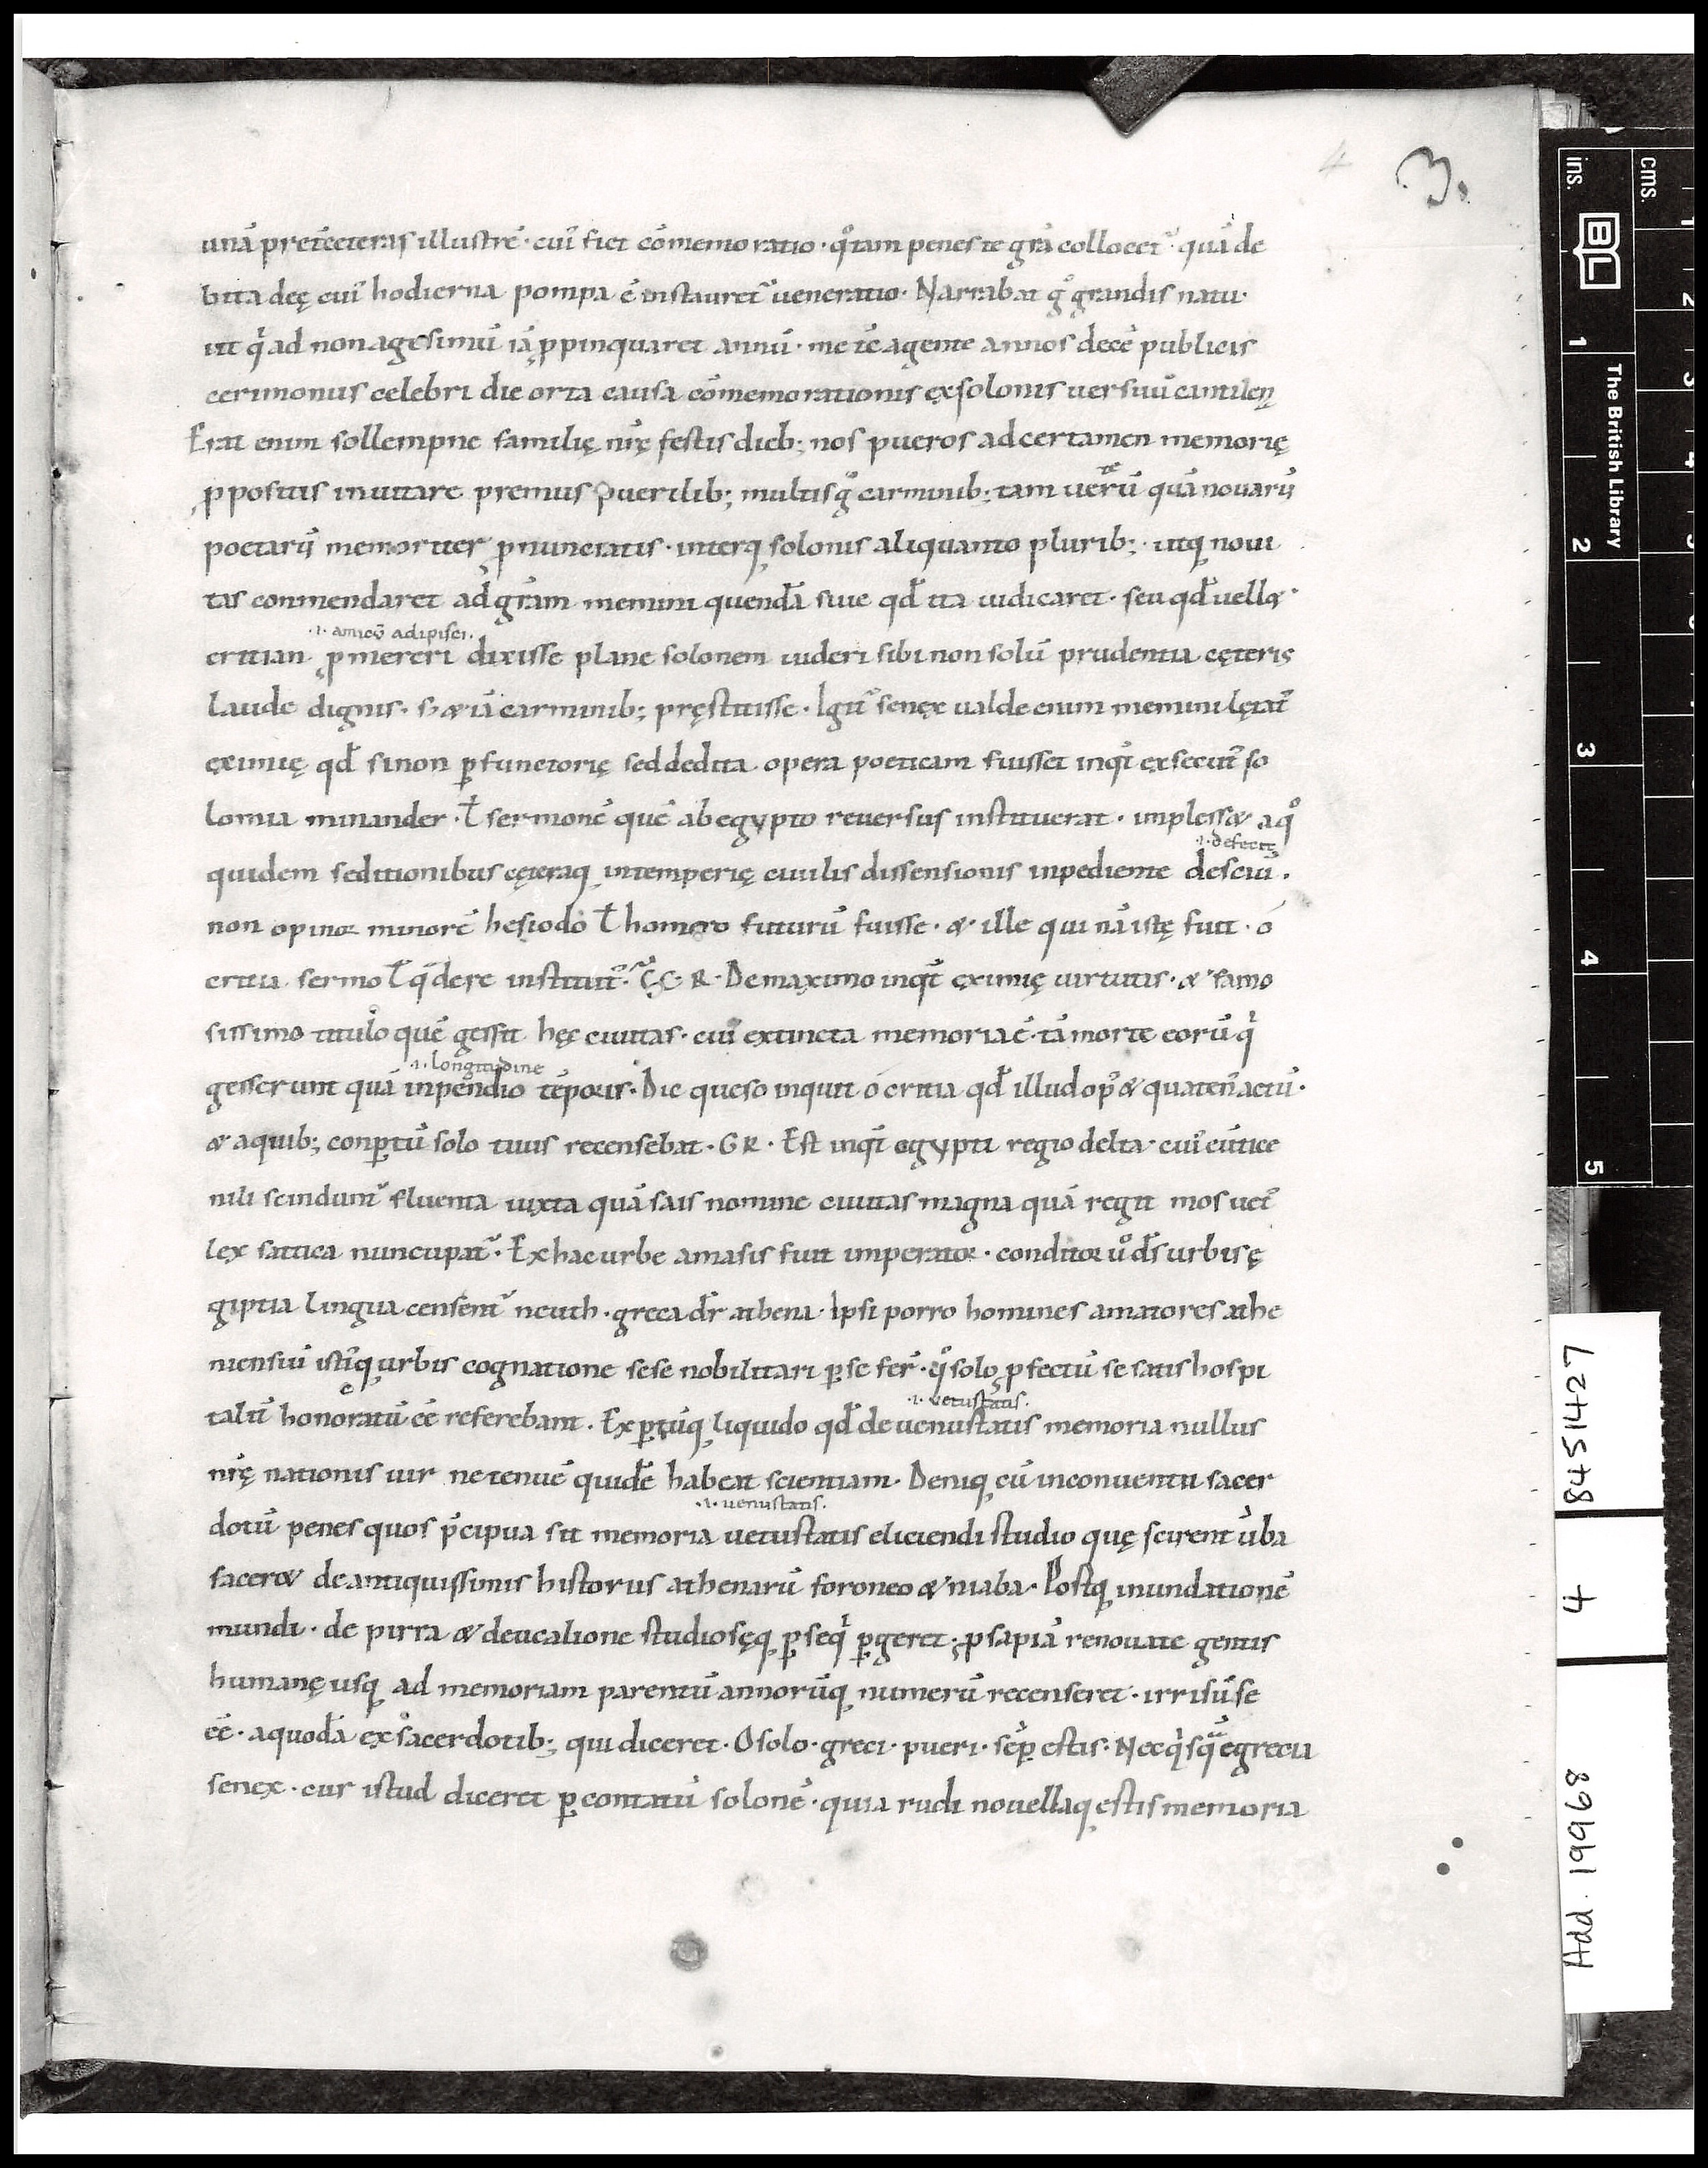 4 3.
unā pretęcteras illustrē · cuiꝰ fiet cōmemoratio · qͦ tam penes te gr̄a collocet᷑ quā de
bita deę cuiꝰ hodierna pompa ē instauret᷑ ueneratio · Narrabat gͦ grandis natu ·
ut qͥ ad nonagesimū iā ꝓpinquaret annū · me tc̄ agente annos decē publicis
cerimoniis celebri die orta causa cōmemorationis exsolonis uersuū cantilenę
Erat enim sollempne familię nr̄ę festis dieb; nos pueros adcertamen memorię
ꝓpositis inuitare premiis puerilib; multis gͦ carminib; tam ueterū quā nouarū
poetarū memoriter ꝓnuntiatis · interq; solonis aliquanto plurib; · utq; noui
tas conmendaret ad gr̄am memini quendā siue qd̄ ita iudicaret · seu qd̄ uell& ·
·i· amicū adipisci.
critian ꝓmereri dixisse plane solonem uideri sibi non solū prudentia cęteris
laude dignis · s; & iā carminib; pręstitisse · Igit᷑ senex ualde enim memini lętat᷑
eximię qd̄ sinon ꝑfunctorię sed dedita opera poeticam fuisset inqͥt exsecut᷑ so
lonia minander · ł sermonē quē ab egypto reuersus instituerat · impless& aqͦ
·i· defecit
quidem seditionibus cęteraq; intemperię ciuilis dissensionis inpediente desciui.
non opinor minorē hesiodo ł homero futurū fuisse · & ille qui nā istę fuit · ó
critia sermo ł q̄ de re instituit᷑ · CR · De maximo inqͥt eximię uirtutis · & famo
sissimo titulo quē gessit hęc ciuitas · cuiꝰ extincta memoria ē · tā morte eorū qͥ
·i· longitudine
gesserunt quā inpendio tēporis · Dic queso inquit ó critia qd̄ illud opꝰ & quatenꝰ actū ·
& aquib; conꝑtū solo tuus recensebat · CR · Est inqͥt egypti regio delta · cuiꝰ eūtice
nili scindunt᷑ fluenta iuxta quā sais nomine ciuitas magna quā regit mos uetꝰ
lex satica nuncupat᷑ · Ex hac urbe amasis fuit imperator · conditor uͦ ds̄ urbis ę
giptia lingua censent᷑ neuth · greca dr̄ athena · Ipsi porro homines amatores athe
niensiū istiꝰq; urbis cognatione sese nobilitari ꝑ se fer̄ · qͦ solo ꝓfectū se satis hospi
·i· uetustatis.
talit᷑ honoratū eē referebant. Exꝑtūq; liquido qd̄ de uenustatis memoria nullus
nr̄ę nationis uir ne tenuē quidē habeat scientiam · Deniq; cū inconuentu sacer
·i· uenustatis.
dotū penes quos p̄cipua sit memoria uetustatis eliciendi studio quę scirent u͛ba
facer& de antiquissimis historiis athenarū foroneo & niaba · Postq; inundationē
mundi · de pirra & deucalione studiosęq; ꝑseqͥ ꝑgeret · ꝓsapiā renouate gentis
humanę usq; ad memoriam parentū annorūq; numerū recenseret · irrisū se
eē · aquodā exsacerdotib; qui diceret · O solo · greci · pueri · sēꝑ estis · Nec qͥsq̄ egrecia
senex · cur istud diceret ꝑcontatū solonē · quia rudi nouellaq; estis memoria
ins. cms.
BL The British Library
1 2 3 4 5
1 2 3 4 5
8451427
4
Add. 19968